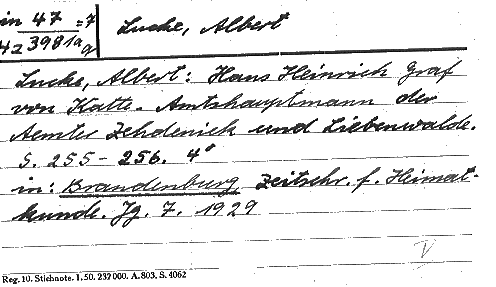 in 47 = 7
42 3981a g
Lucke, Albert
Lucke, Albert: Hans Heinrich Graf
von Katte - Amtshauptmann der
Aemter Zehdenick und Liebenwalde.
S. 255 - 256. 4°
in: Brandenburg Zeitschr. f. Heimat-
kunde. Jg. 7. 1929
V
Reg. 10. Stichnote. I. 50. 232 000. A. 803. S. 4062